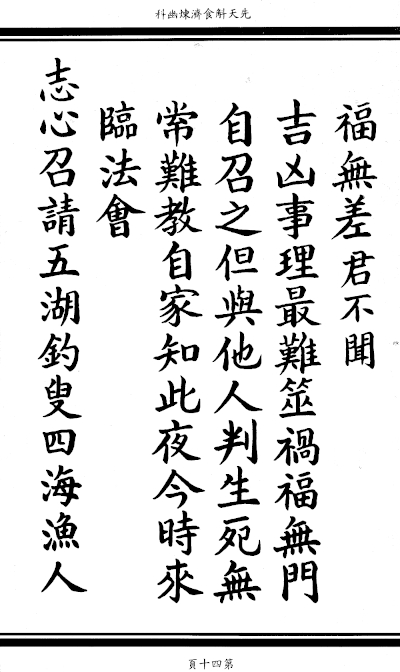 先天斛食濟煉幽科
福無差君不聞
吉凶事理最難筮禍福無門
自召之但與他人判生死無
常難教自家知此夜今時來
臨法會
志心召請五湖釣叟四海漁人
第四十頁